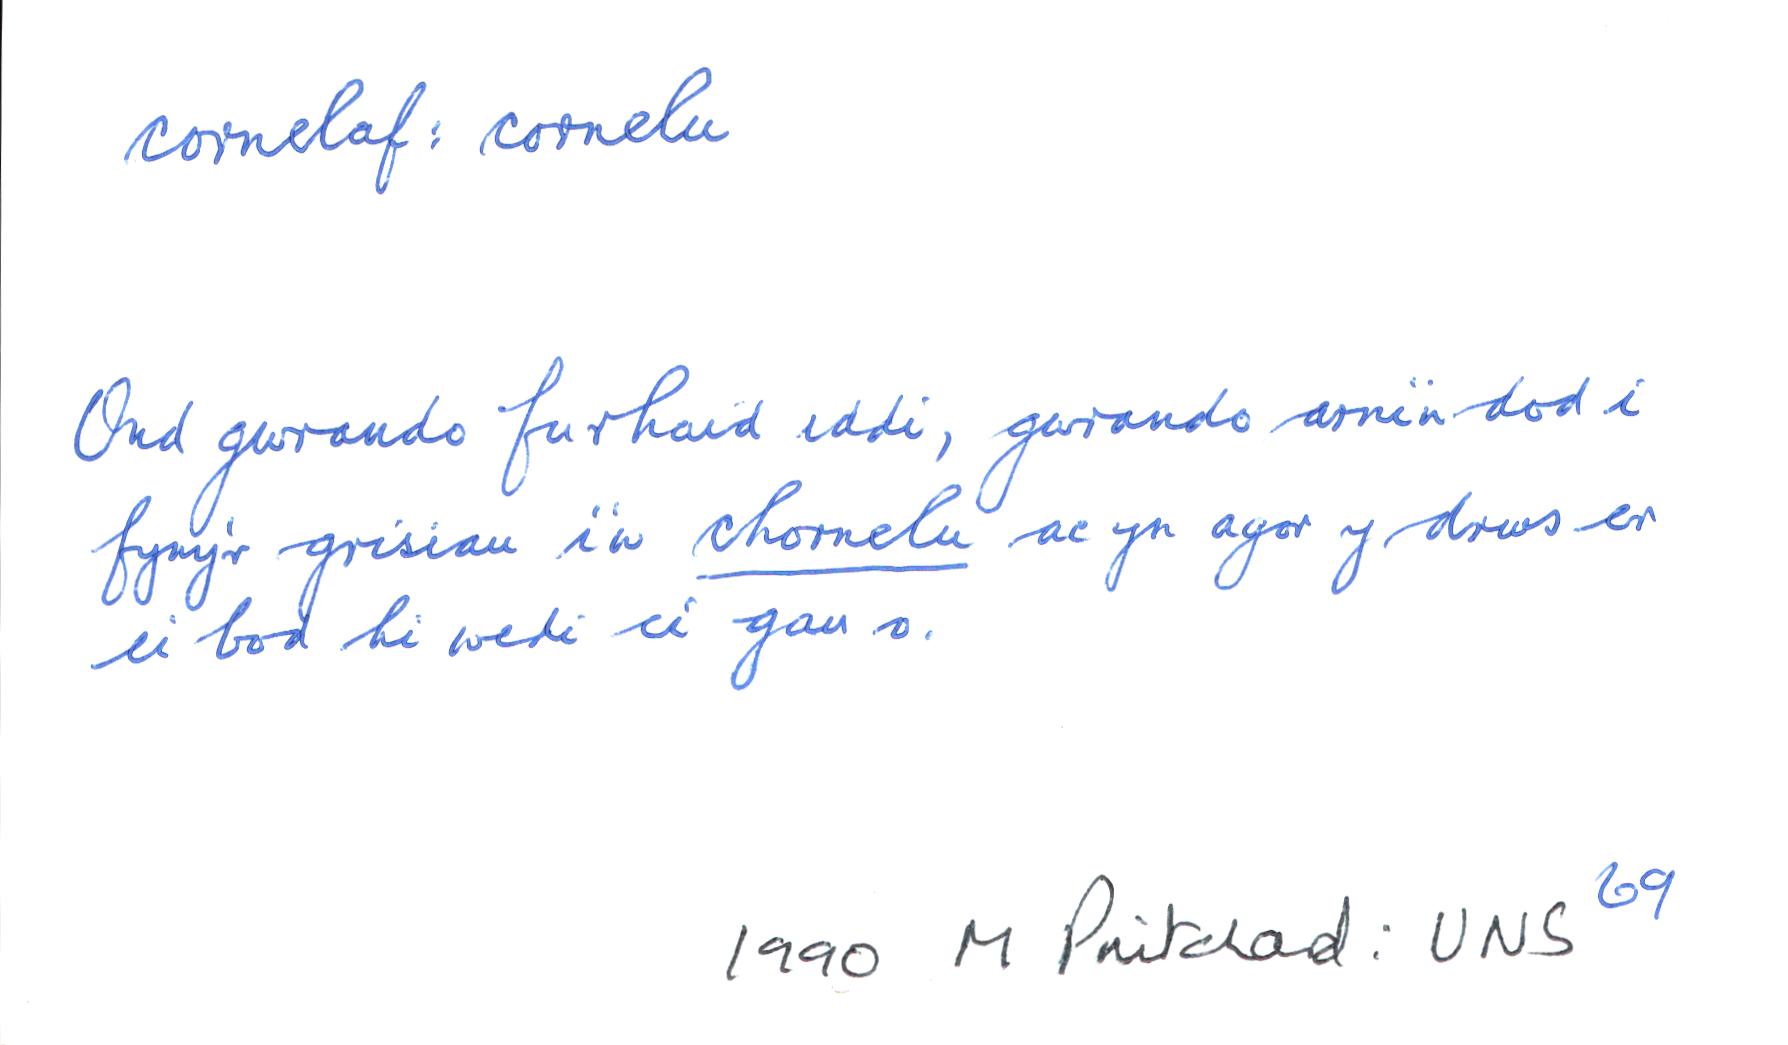 cornelaf: cornelu
Ond gwrando fu rhaid iddi, gwrando arni'n dod i
fyny'r grisiau i'w chornelu ac yn agor y drws er
ei bod hi wedi ei gau o.
1990 M Pritchard: UNS 69